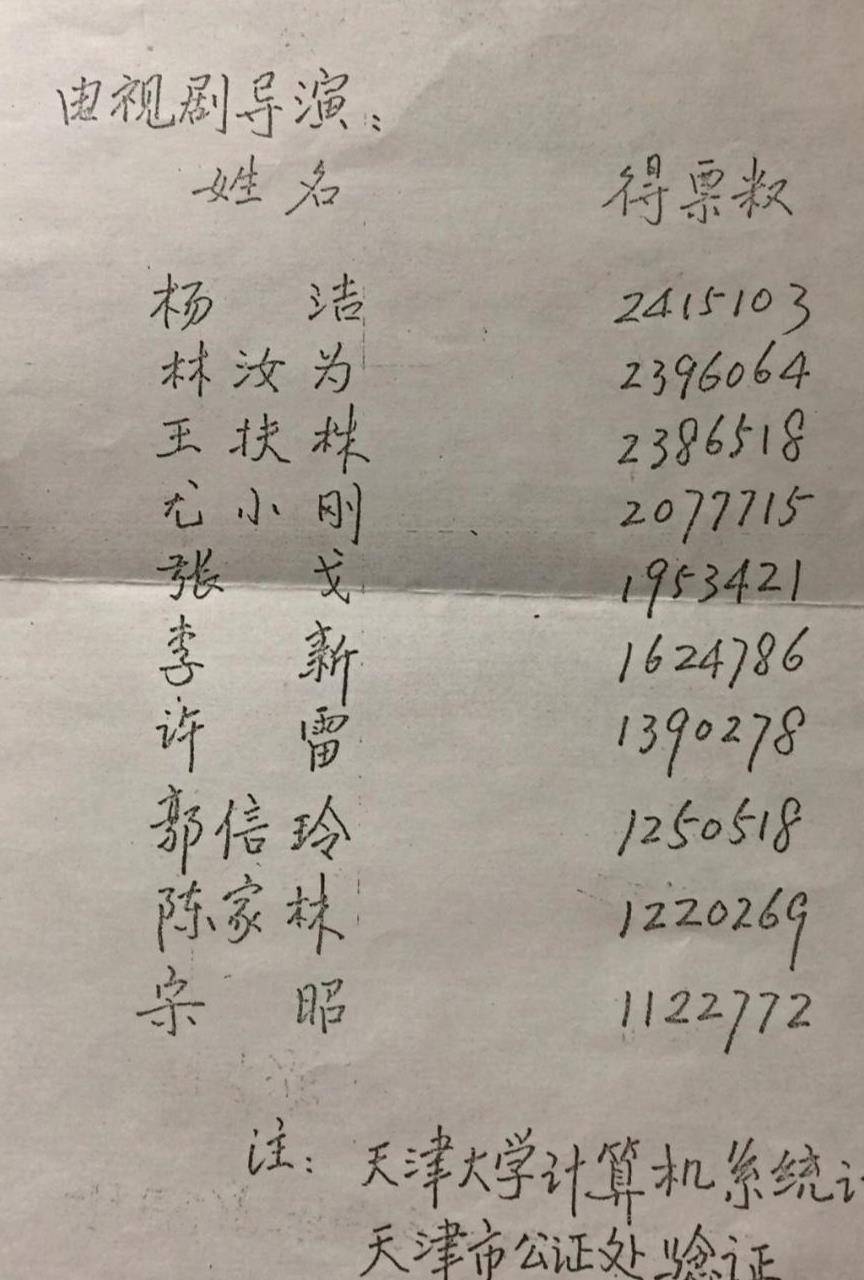 电视剧导演:
姓名 得票数
杨洁 2415103
林汝为 2396064
王扶林 2386518
尤小刚 2077715
张戈 1953421
李新 1624786
许雷 1390278
郭信玲 1250518
陈家林 1220269
宋昭 1122772
注: 天津大学计算机系统计
天津市公证处验证